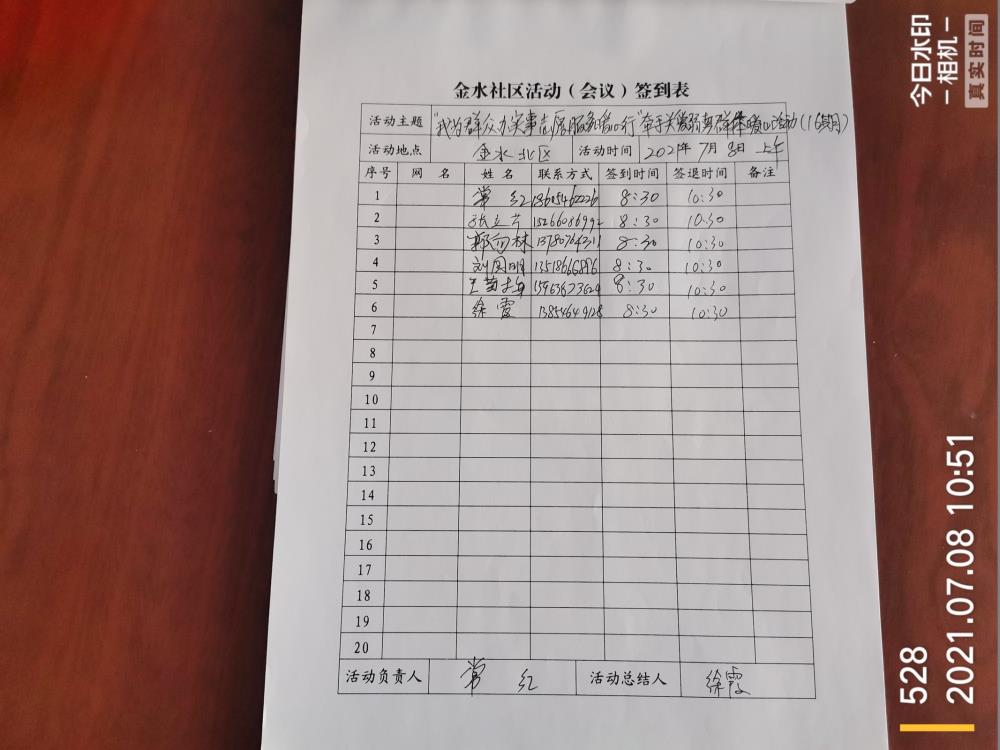 金水社区活动（会议）签到表
活动主题 "我为群众办实事志愿服务暖心行"牵手关爱弱势群体暖心活动(16期)
活动地点 金水北区 活动时间 2021年7月8日 上午
序号 网名 姓名 联系方式 签到时间 签退时间 备注
1 常红 18605462226 8:30 10:30
2 张立芹 15266086992 8:30 10:30
3 郭向林 13780764311 8:30 10:30
4 刘国 8:30 10:30
5 王 8:30 10:30
6 徐霞 13854649128 8:30 10:30
7
8
9
10
11
12
13
14
15
16
17
18
19
20
活动负责人 常红 活动总结人 徐霞
今日水印
相机
真实时间
528
2021.07.08 10:51